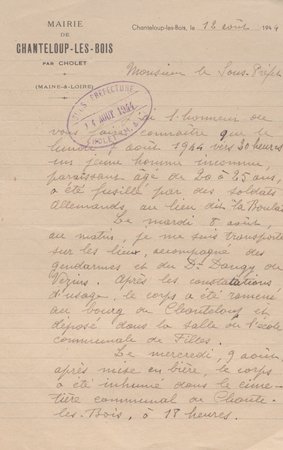 MAIRIE
DE
CHANTELOUP-LES-BOIS
PAR CHOLET
(MAINE-&-LOIRE)
Chanteloup-les-Bois, le 12 août 1944
Monsieur le Sous-Préfet
SOUS-PRÉFECTURE
14 AOUT 1944
CHOLET
J'ai l'honneur de
vous faire connaître que le
lundi 7 août 1944 vers 20 heures
un jeune homme inconnu,
paraissant âgé de 20 à 25 ans,
a été fusillé par des soldats
Allemands, au lieu dit la
Le mardi 8 août,
au matin, je me suis transporté
sur les lieux, accompagné des
gendarmes et du Dr de
Vezins. Après les constatations
d'usage, le corps a été ramené
au bourg de Chanteloup et
déposé dans la salle de l'école
communale de Filles.
Le mercredi, 9 août
après mise en bière, le corps
a été inhumé dans le cime-
tière communal de Chante-
les-Bois, à 18 heures.